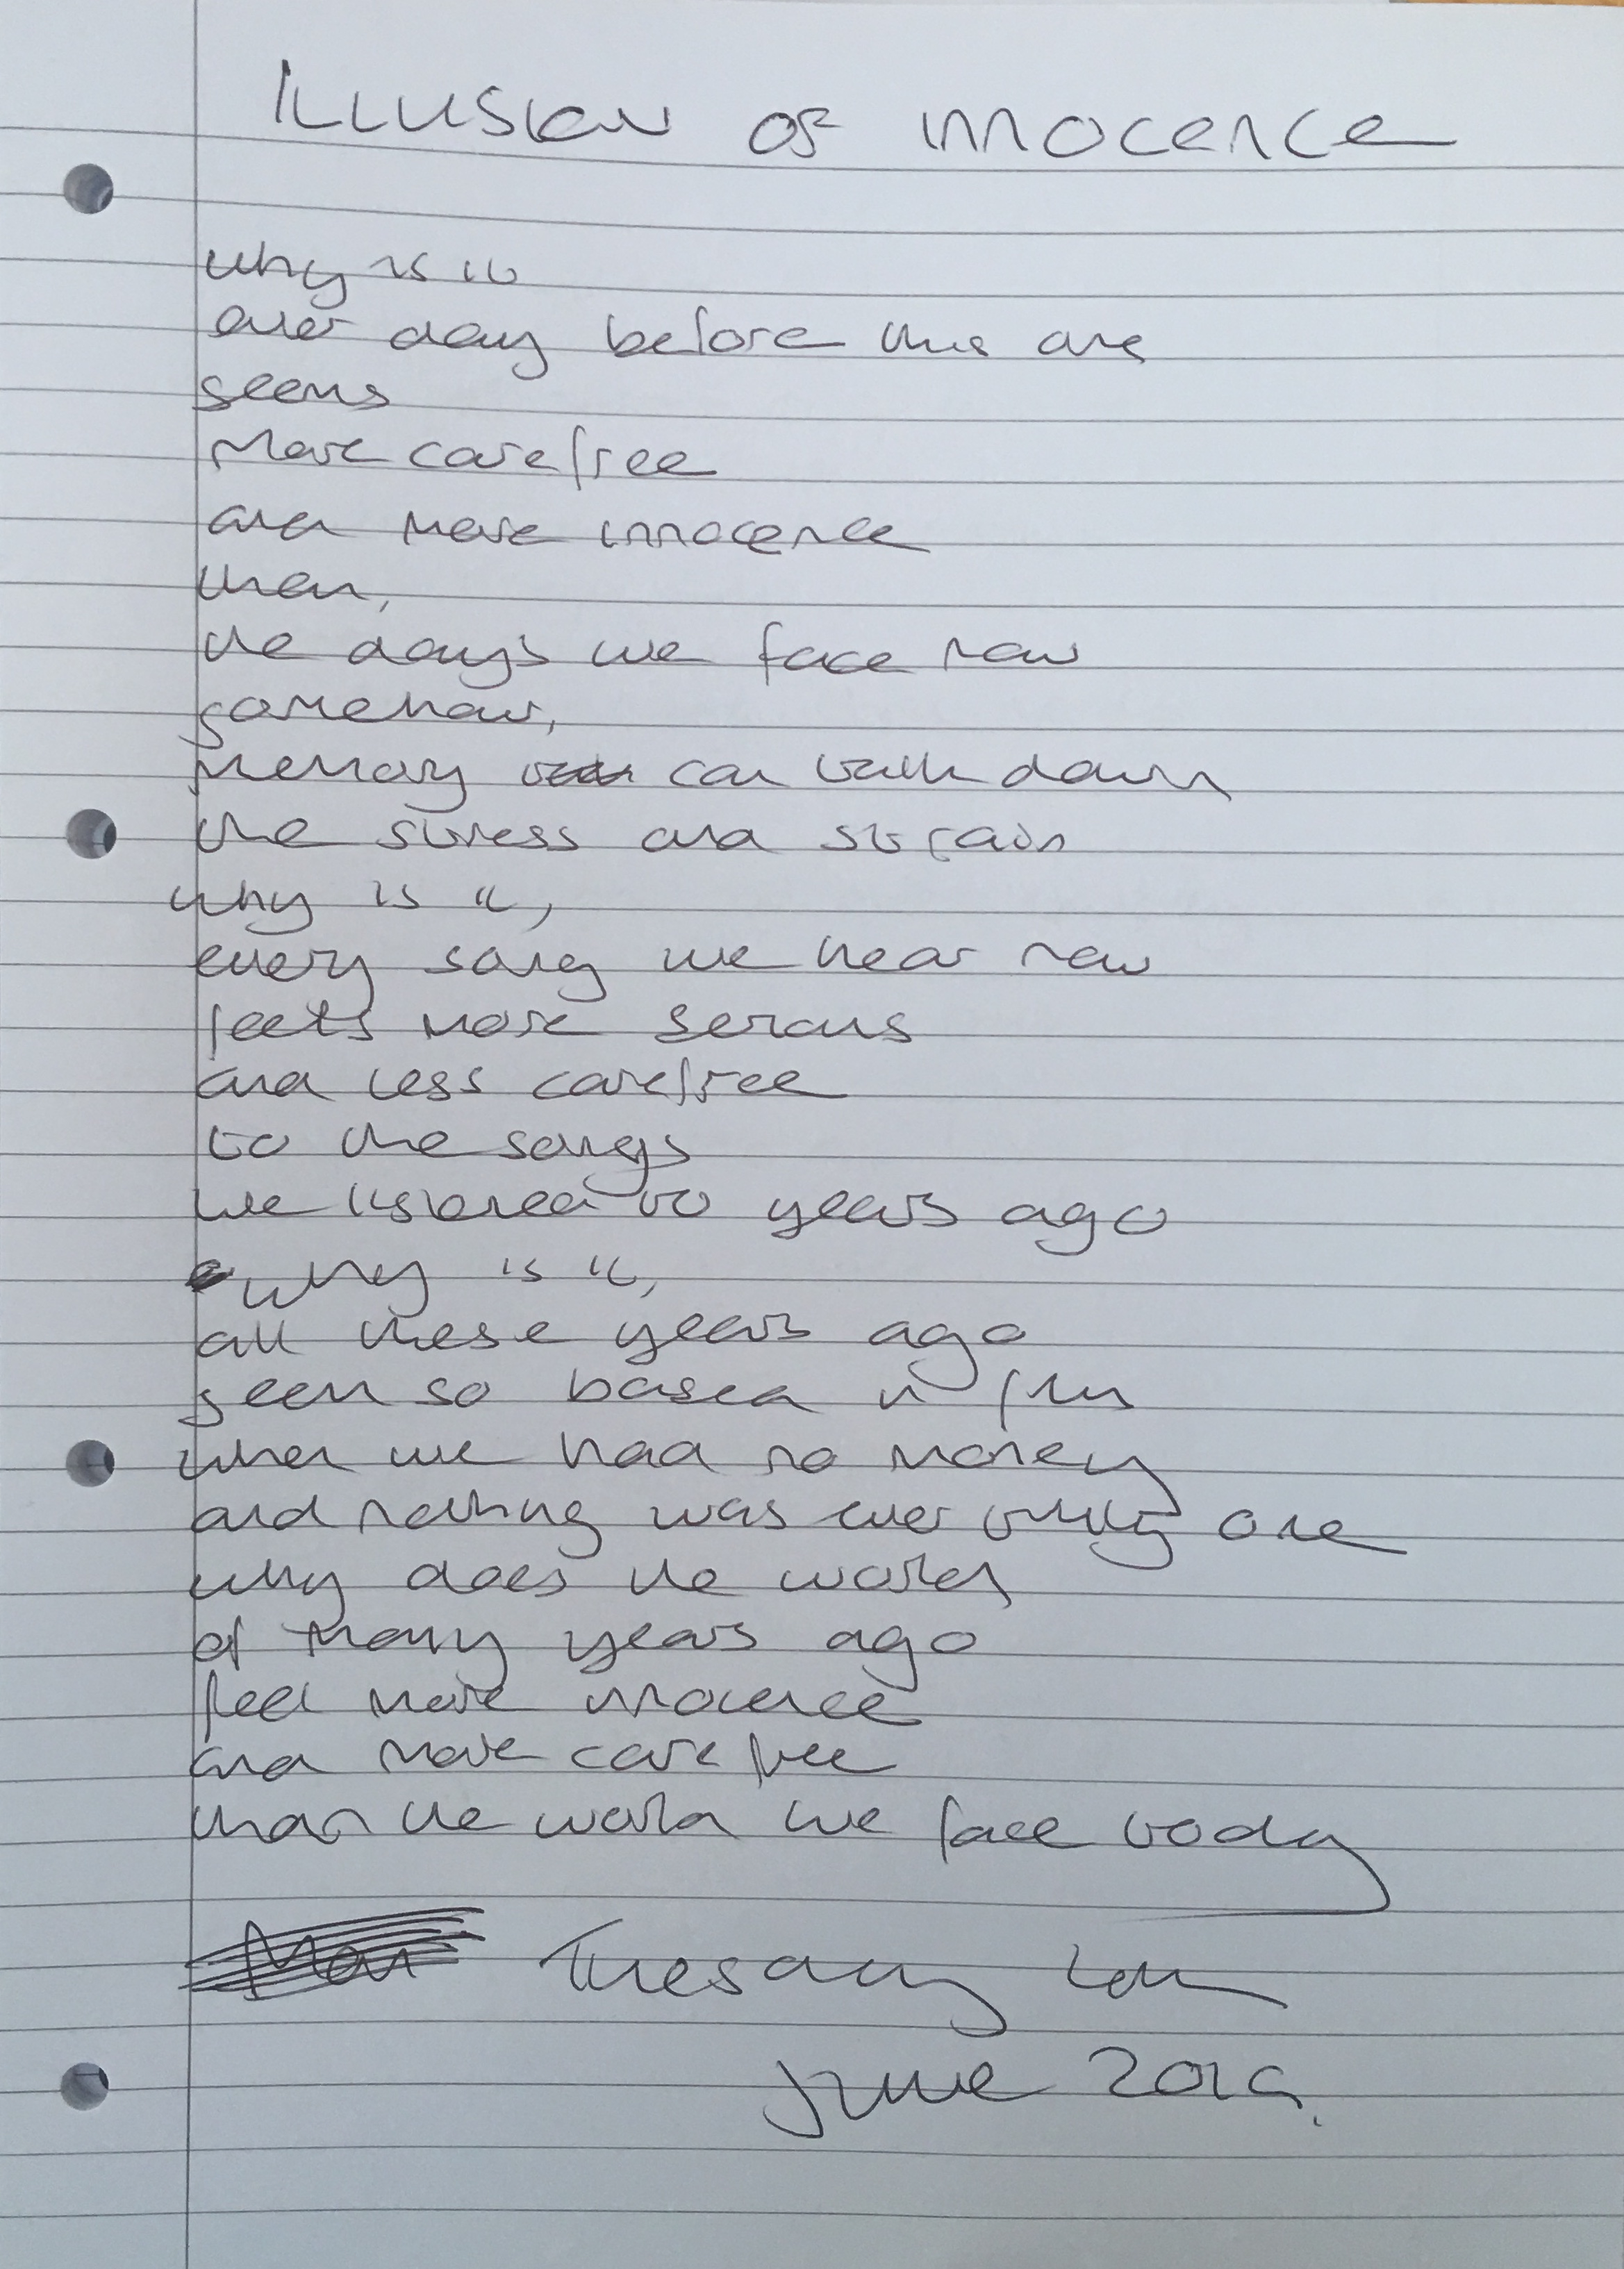 Illusion of innocence
why is it
ever day before this one
seems
more carefree
and more innocence
than,
the days we face now
somehow,
memory can down
the stress and strain
why is it,
every song we hear now
feels more serious
and less carefree
to the songs
we listened to years ago
why is it,
all these years ago
seem so based in fun
when we had no money
and nothing was ever truly one
why does the world
of many years ago
feel more innocence
and more care free
than the world we face today
Tuesday
June 2019.